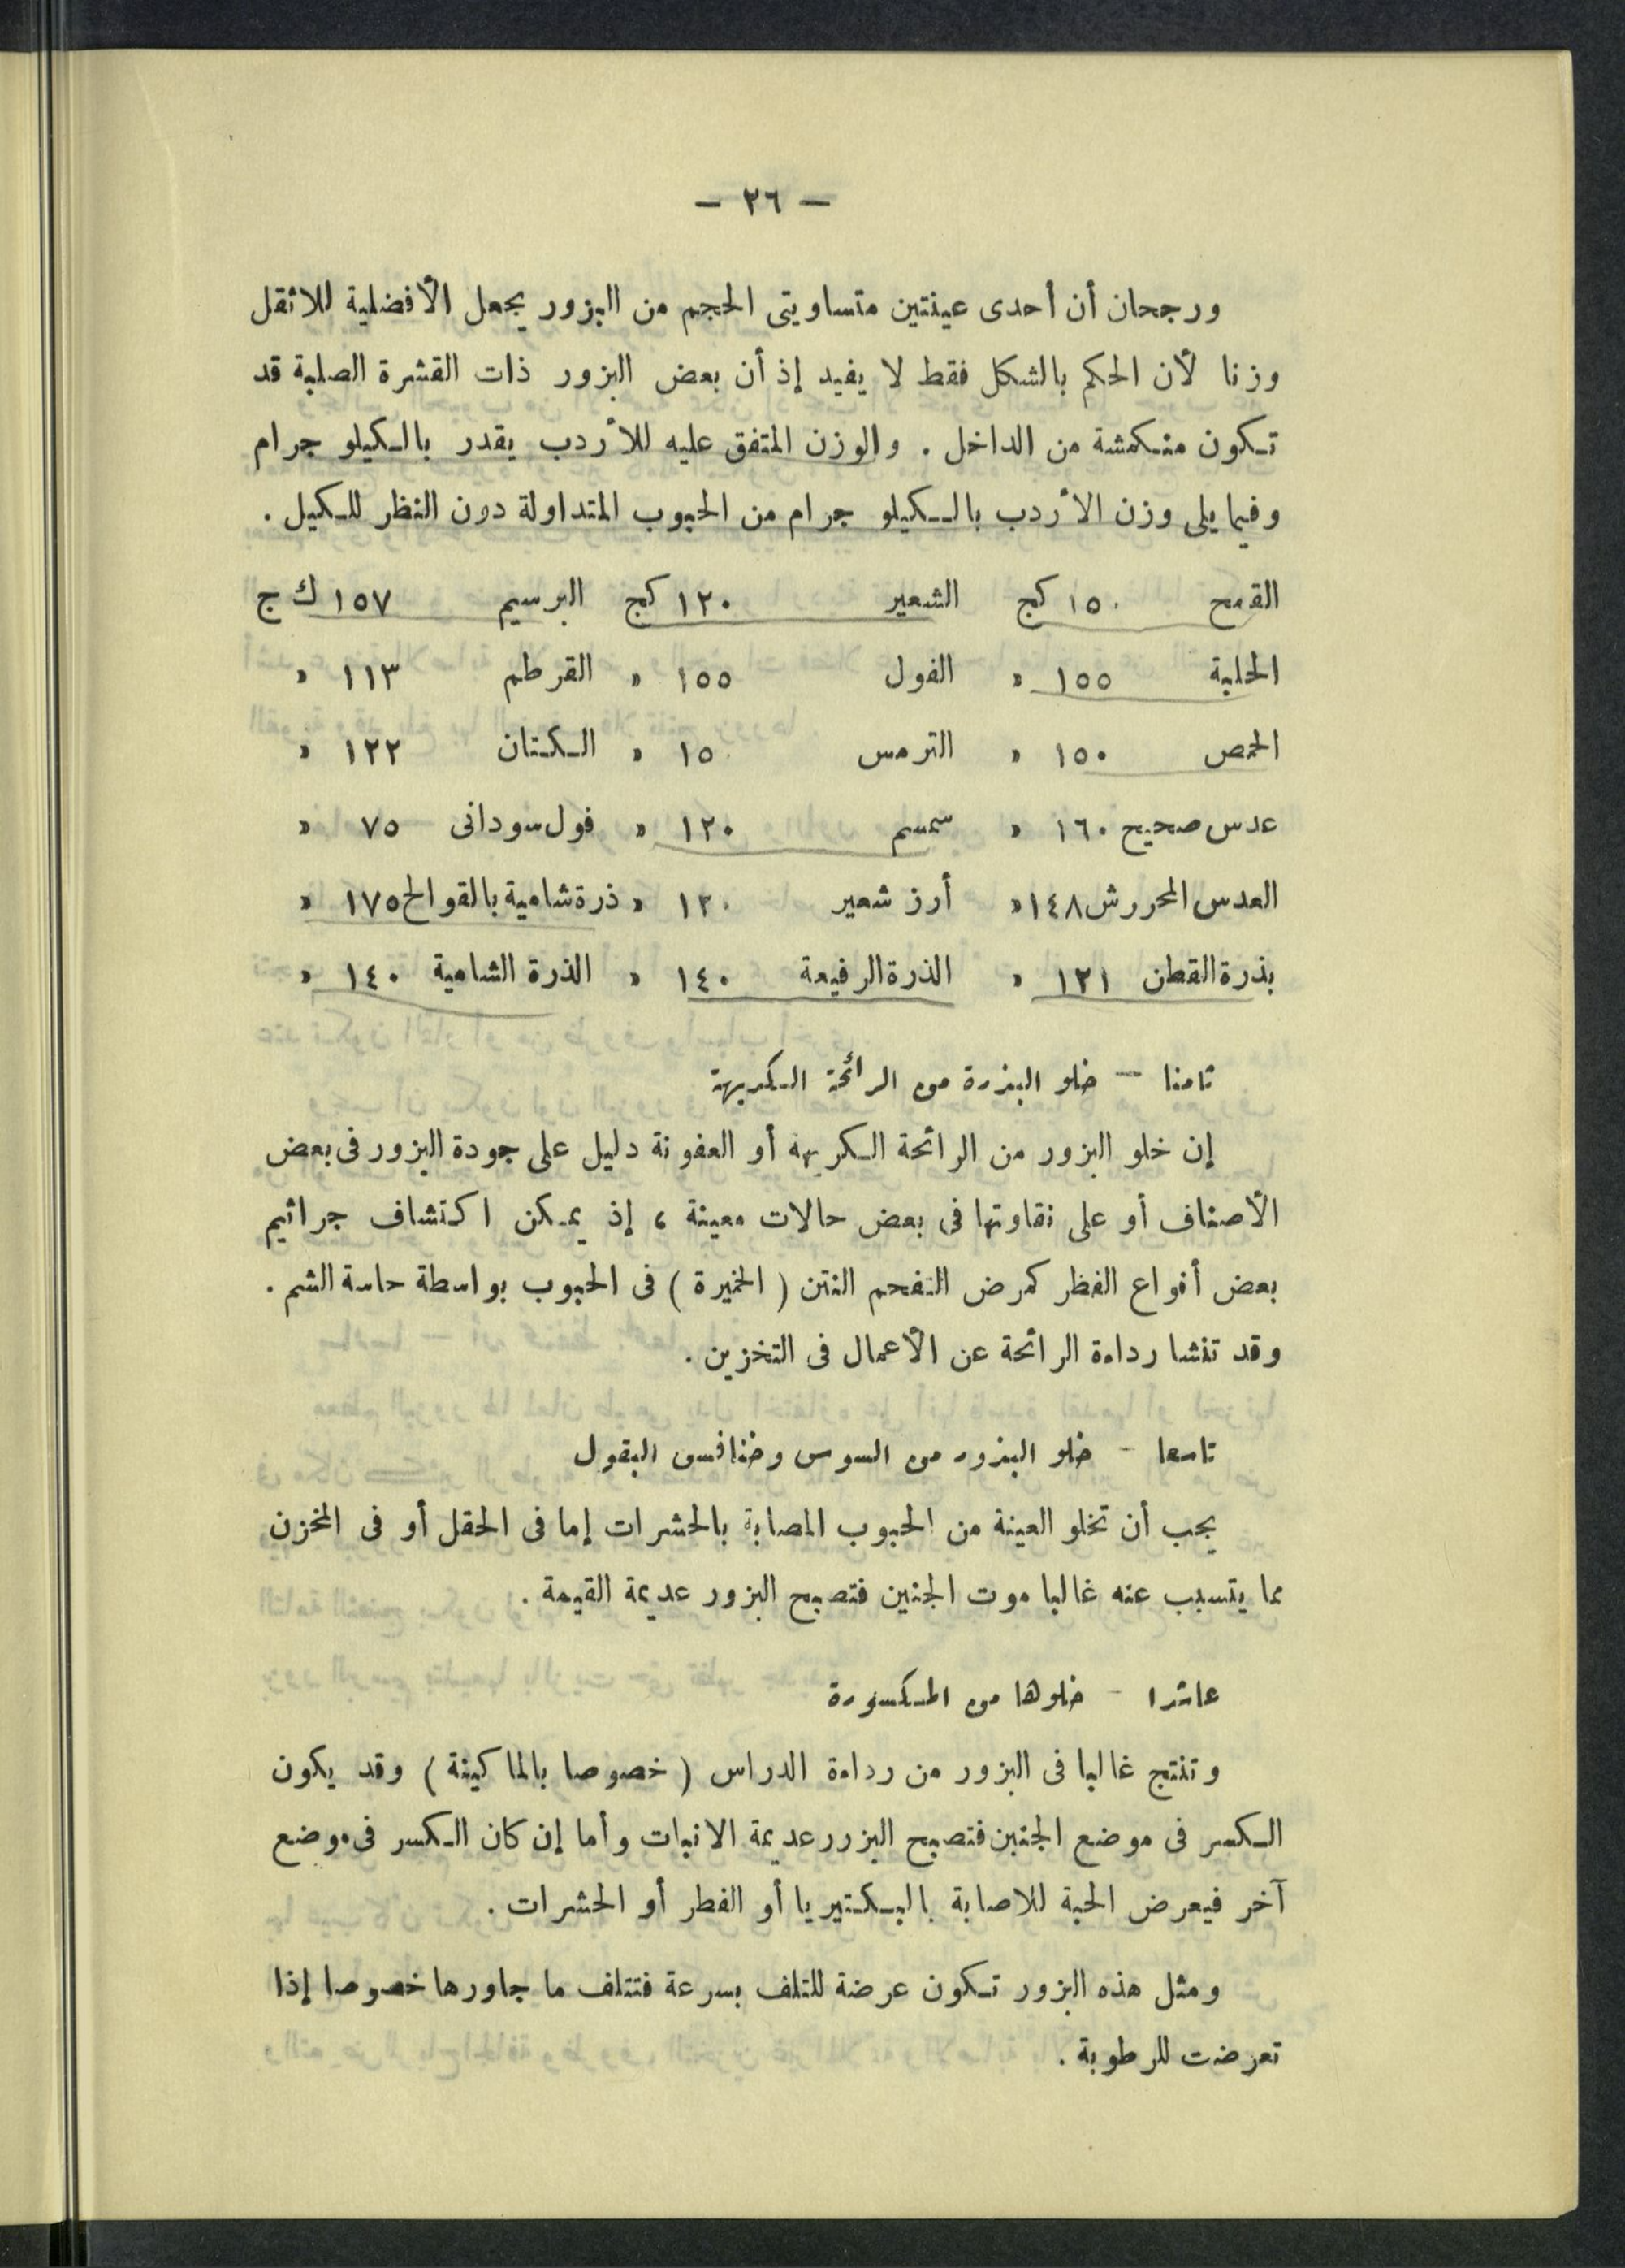 — ٢٦ —
ورجحان أن أحدى عينتين متساويتى الحجم من البزور يجعل الأفضلية للاثقل
وزنا لأن الحكم بالشكل فقط لا يفيد إذ أن بعض البزور ذات القشرة الصلبة قد
تكون منكمشة من الداخل . والوزن المتفق عليه للأردب يقدر بالكيلو جرام
وفيما يلى وزن الأردب بالكيلو جرام من الحبوب المتداولة دون النظر للكيل .
القمح ١٥٠ كج الشعير ١٢٠ كج البرسيم ١٥٧ ك ج
الحلبة ١٥٥ » الفول ١٥٥ » القرطم ١١٣ »
الحمص ١٥٠ » الترمس ١٥٠ » الكتان ١٢٢ »
عدس صحيح ١٦٠ » سمسم ١٢٠ » فول سودانى ٧٥ »
العدس المجروش ١٤٨ » أرز شعير ١٢٠ » ذرة شامية بالقوالح ١٧٥ »
بذرة القطن ١٢١ » الذرة الرفيعة ١٤٠ » الذرة الشامية ١٤٠ »
ثامنا – خلو البذرة من الرائحة الكريهة
إن خلو البزور من الرائحة الكريهة أو العفونة دليل على جودة البزور فى بعض
الأصناف أو على نقاوتها فى بعض حالات معينة ، إذ يمكن اكتشاف جراثيم
بعض أنواع الفطر كمرض التفحم النتن ( الخميرة ) فى الحبوب بواسطة حاسة الشم .
وقد تنشا رداءة الرائحة عن الأعمال فى التخزين .
تاسعا – خلو البذور من السوس وخنافس البقول
يجب أن تخلو العينة من الحبوب المصابة بالحشرات إما فى الحقل أو فى المخزن
مما يتسبب عنه غالبا موت الجنين فتصبح البزور عديمة القيمة .
عاشرا – خلوها من المكسورة
وتنتج غالبا فى البزور من رداءة الدراس ( خصوصا بالماكينة ) وقد يكون
الكسر فى موضع الجنين فتصبح البزور عديمة الانبات وأما إن كان الكسر فى موضع
آخر فيعرض الحبة للاصابة بالبكتيريا أو الفطر أو الحشرات .
ومثل هذه البزور تكون عرضة للتلف بسرعة فتتلف ما جاورها خصوصا إذا
تعرضت للرطوبة .